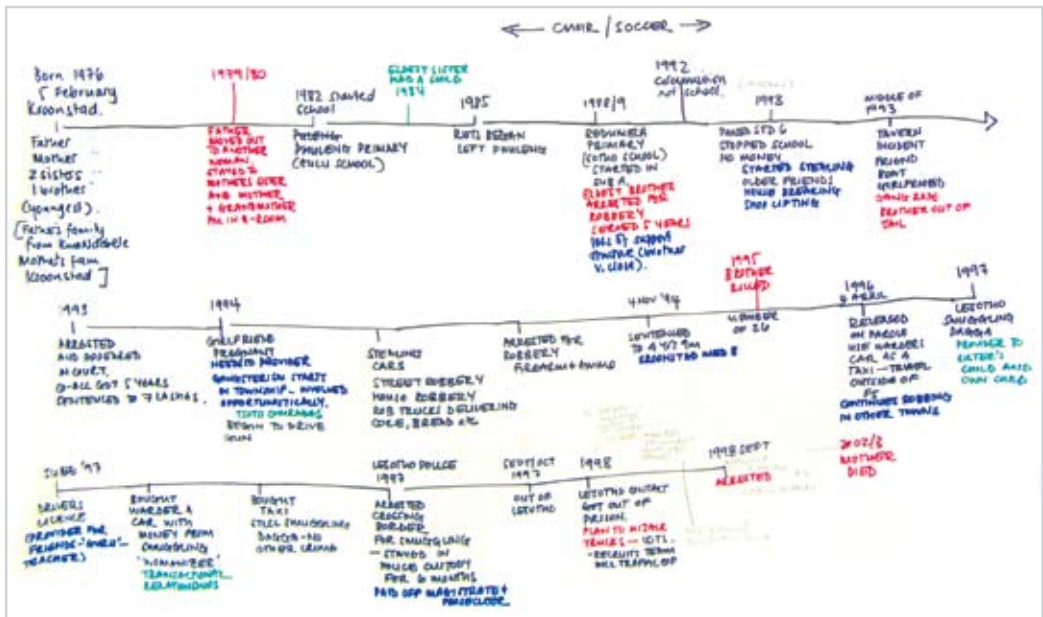 CHOIR / SOCCER
Born 1976
5 February
Kroonstad.
Father
Mother "
2 sisters "
1 brother "
(youngest).
[Father's family
from KwaNdebele
Mother's fam
Kroonstad]
1979/80
FATHER
MOVED OUT
TO ANOTHER
WOMAN.
STAYED c
MOTHERS SISTER
AND MOTHER
+ GRANDMOTHER
ALL IN 4-ROOM
1982 started
school
PHULENG
PHULENG PRIMARY
(ZULU SCHOOL)
ELDEST SISTER
HAD A CHILD
1984
1985
RIOTS BEGAN
LEFT PHULENG
1988/9
PRIMARY
(SOTHO SCHOOL)
STARTED IN
SUB A.
ELDEST BROTHER
ARRESTED FOR
ROBBERY
SERVED 5 YEARS
loss of support
structure (brother
v. close).
1992
not school.
1993
PASSED STD 6
STOPPED SCHOOL
NO MONEY
STARTED STEALING
OLDER FRIENDS
HOUSE BREAKING
SHOP LIFTING
MIDDLE OF
1993
TAVERN
INCIDENT
FRIEND
GIRLFRIEND
GANG RAPE
BROTHER OUT OF
JAIL
1993
ARRESTED
AND APPEARED
IN COURT.
CO-ALL GOT 5 YEARS
SENTENCED TO 7 LASHES.
1994
GIRLFRIEND
PREGNANT
NEEDED TO PROVIDER
GANGSTERISM STARTS
IN TOWNSHIP - INVOLVED
OPPORTUNISTICALLY.
COMRADES
BEGIN TO DRIVE
GUN
STEALING
CARS
STREET ROBBERY
HOUSE ROBBERY
ROB TRUCKS DELIVERING
COKE, BREAD etc
ARRESTED FOR
ROBBERY
FIREARM + AMMO
4 NOV '94
SENTENCED
TO 4 yr 9m
GROENPUNT MED B
1995
BROTHER
KILLED
MEMBER
OF 26
1996
APRIL
RELEASED
ON PAROLE
USE WARDERS
CAR AS A
TAXI - TRAVEL
OUTSIDE OF
FS
CONTINUE ROBBING
IN OTHER TOWNS
1997
LESOTHO
SMUGGLING
DAGGA
PROVIDER TO
SISTER'S
CHILD AND
OWN CHILD
2002/3
MOTHER
DIED
JUNE '97
DRIVERS
LICENCE
(PROVIDER FOR
FRIENDS - 'GURU' -
TEACHER)
BOUGHT
WARDER A
CAR WITH
MONEY FROM
SMUGGLING
'WOMANIZER'
TRANSACTIONAL
RELATIONSHIPS
BOUGHT
TAXI
STILL SMUGGLING
DAGGA - NO
OTHER CRIME
LESOTHO POLICE
1997
ARRESTED
CROSSING
BORDER
FOR SMUGGLING
- STAYED IN
POLICE CUSTODY
FOR 6 MONTHS
PAID OFF MAGISTRATE +
PROSECUTOR
SEPT/OCT
1997
OUT OF
LESOTHO
1998
LESOTHO CONTACT
GOT OUT OF
PRISON.
PLAN TO HIJACK
TRUCKS -
- RECRUITS TEAM
INCL TRAFFIC OFF
1998 SEPT
ARRESTED